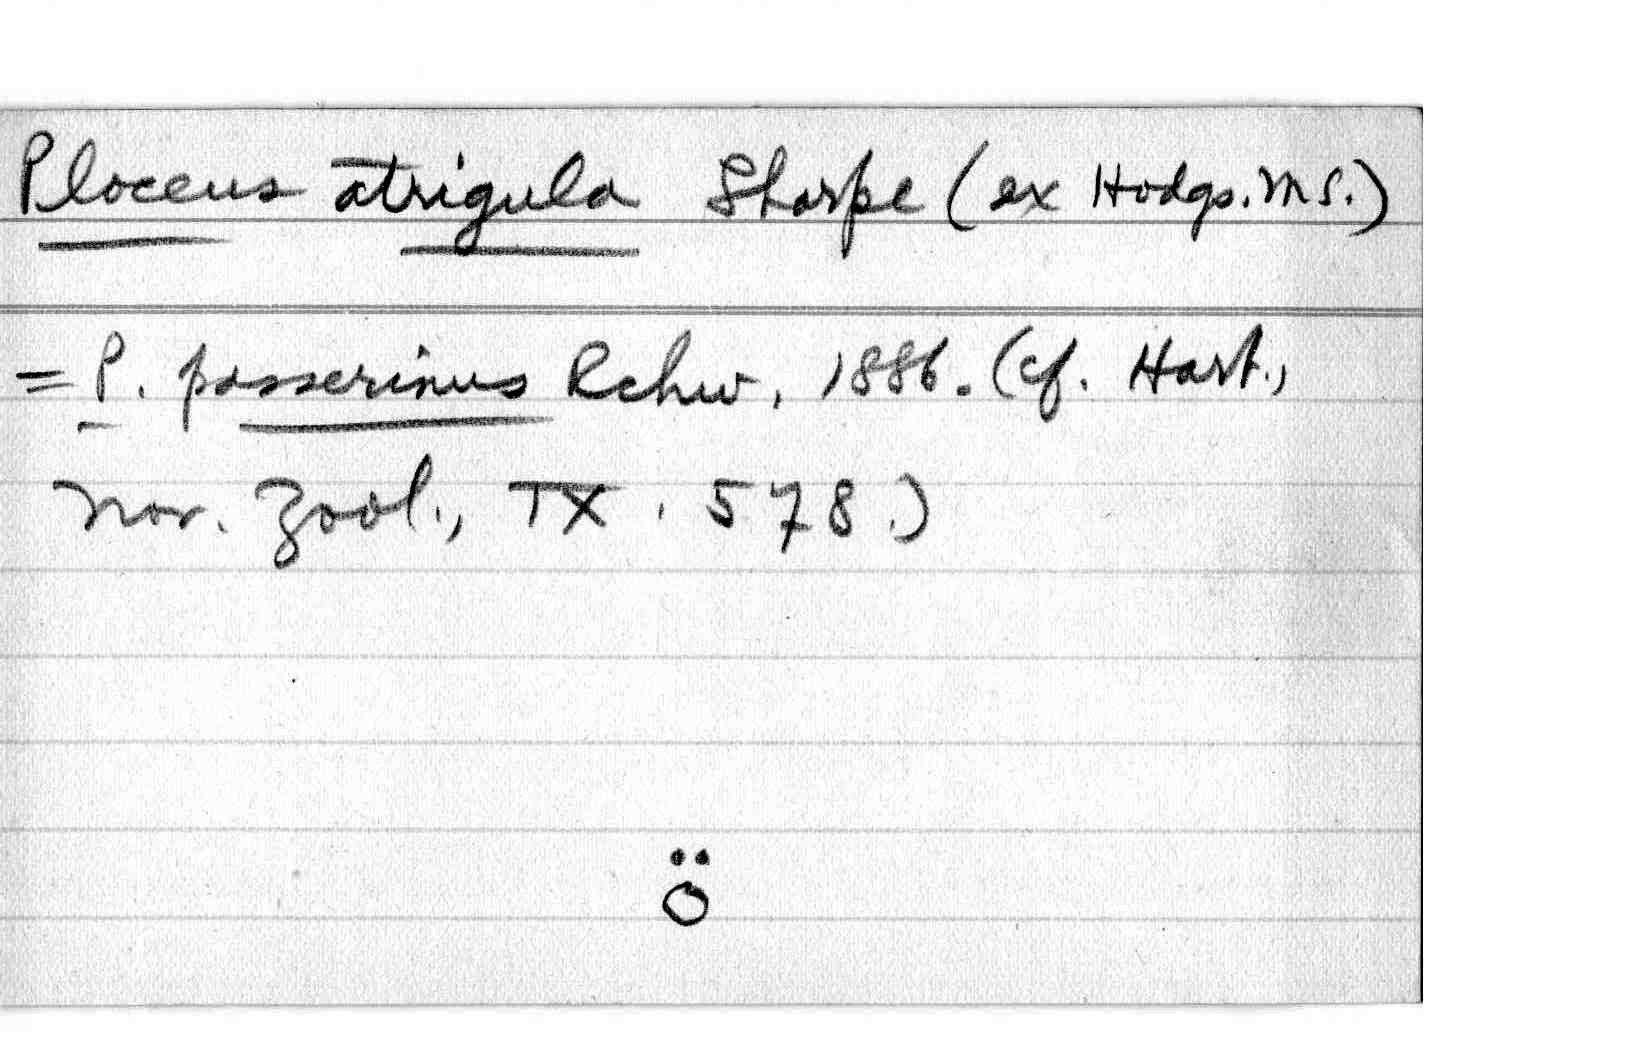 Ploceus atrigula Sharpe (ex Hodgs. MS.)
= P. passerinus Rchw., 1886. (cf. Hart.,
Nov. Zool., IX. 578.)
Ö